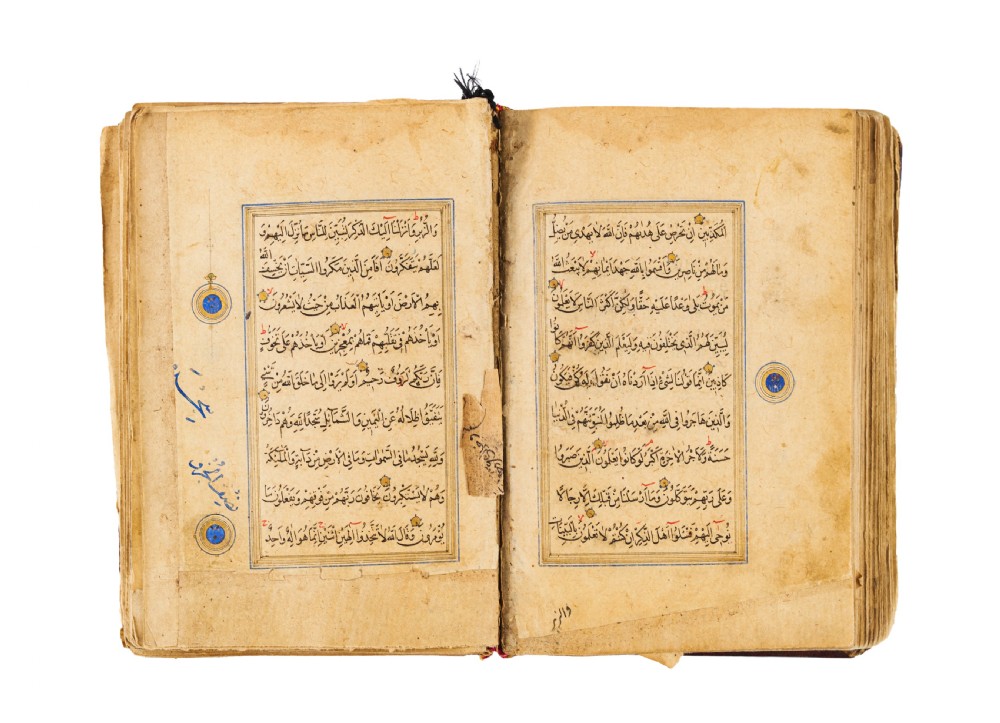 المكذبين ان تحرص على هديهم فان الله لا يهدى من يضل
وما لهم من ناصرين واقسموا بالله جهد ايمانهم لا يبعث الله
من يموت بلى وعدا عليه حقا ولكن اكثر الناس لا يعلمون
ليبين لهم الذى يختلفون فيه وليعلم الذين كفروا انهم كانوا
كاذبين انما قولنا لشىء اذا اردناه ان نقول له كن فيكون
والذين هاجروا فى الله من بعد ما ظلموا لنبوئنهم فى الدنيا
حسنة ولاجر الاخرة اكبر لو كانوا يعلمون الذين صبروا
وعلى ربهم يتوكلون وما ارسلنا من قبلك الا رجالا
نوحى اليهم فسئلوا اهل الذكر ان كنتم لا تعلمون بالبينات
والزبر
والزبر وانزلنا اليك الذكر لتبين للناس ما نزل اليهم و
لعلهم يتفكرون افامن الذين مكروا السيئات ان يخسف الله
بهم الارض او ياتيهم العذاب من حيث لا يشعرون
او ياخذهم فى تقلبهم فما هم بمعجزين او ياخذهم على تخوف
فان ربكم لرؤف رحيم اولم يروا الى ما خلق الله من شىء
يتفيؤا ظلاله عن اليمين والشمائل سجدا لله وهم داخرون
ولله يسجد ما فى السموات وما فى الارض من دابة والملئكة
وهم لا يستكبرون يخافون ربهم من فوقهم ويفعلون ما
يؤمرون وقال الله لا تتخذوا الهين اثنين انما هو اله واحد
نصف الحزب